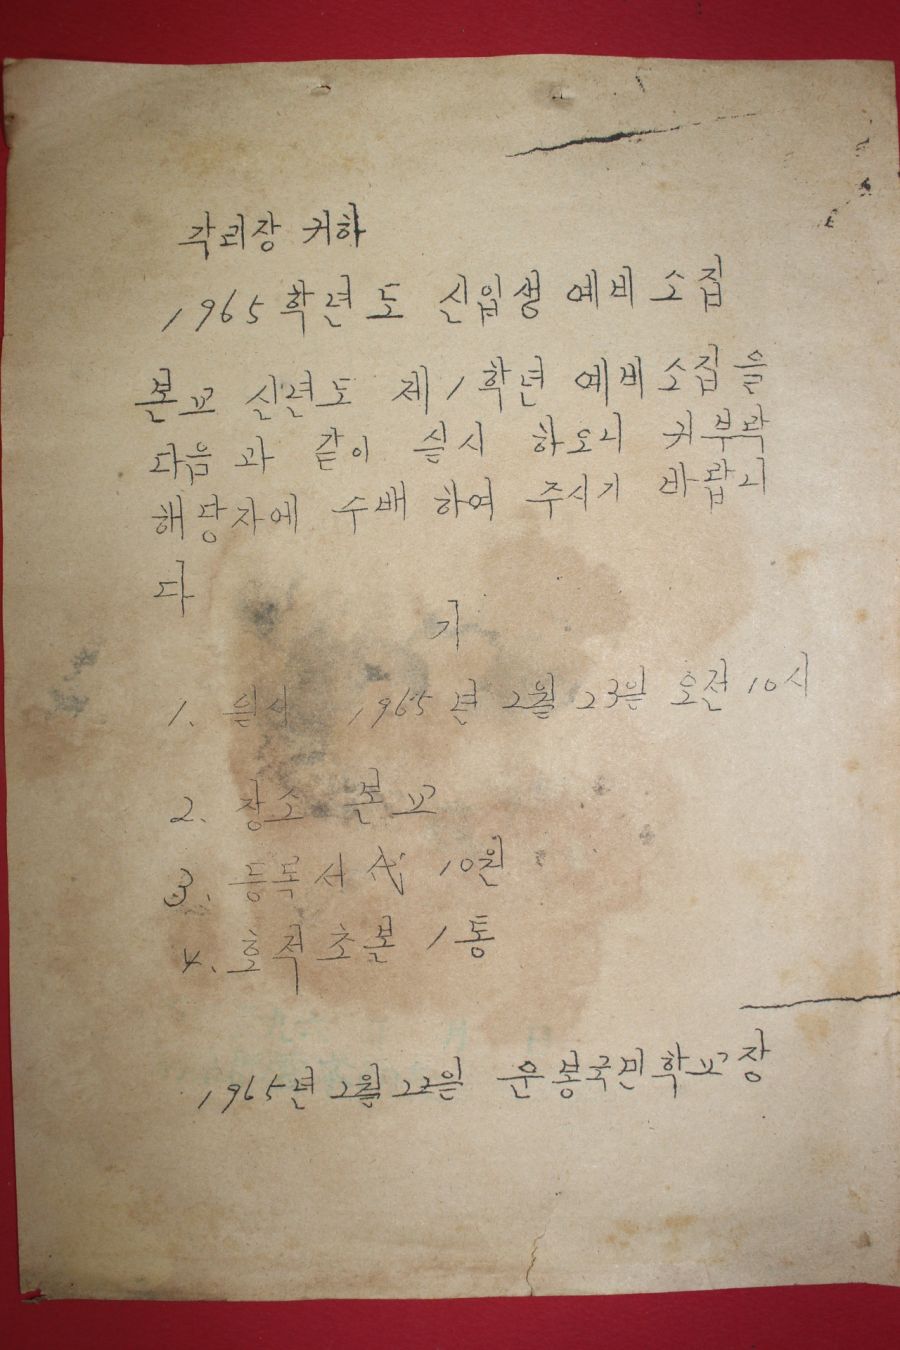 각리장 귀하
1965 학년도 신입생 예비소집
본교 신년도 제1학년 예비소집을
다음과 같이 실시 하오니 귀부락
해당자에 수배 하여 주시기 바랍니
다
기
1. 일시 1965년 2월 23일 오전 10시
2. 장소 본교
3. 등록서代 10원
4. 호적초본 1통
1965년 2월 22일 운봉국민학교장